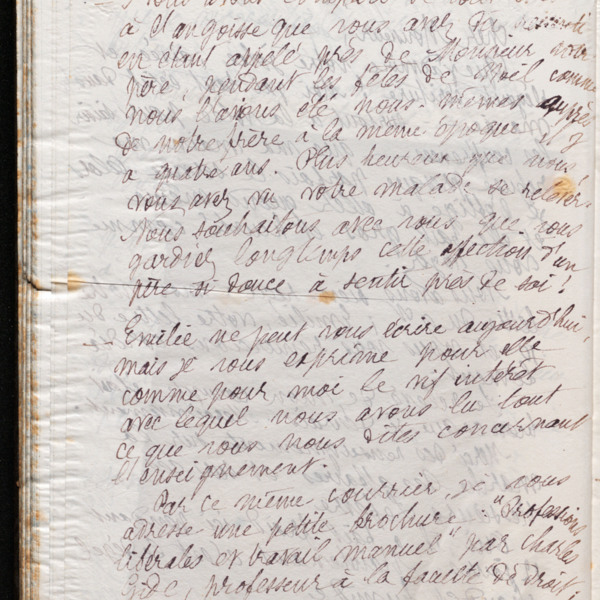 à l'angoisse que vous avez dû
en étant appelé près de Monsieur votre
père, pendant les fêtes de Noël comme
nous l'avions été nous-mêmes auprès
de notre frère à la même époque, il y
a quatre ans. Plus heureux que nous,
vous avez vu votre malade se relever.
Nous souhaitons avec vous que vous
gardiez longtemps cette affection d'un
père si douce à sentir près de soi!
Emilie ne peut vous écrire aujourd'hui,
mais je vous exprime pour elle
comme pour moi le vif intérêt
avec lequel nous avons lu tout
ce que vous nous dites concernant
l'enseignement.
Par ce même courrier, je vous
adresse une petite brochure: "Professions
libérales et travail manuel" par Charles
Gide, professeur à la faculté de Droit,